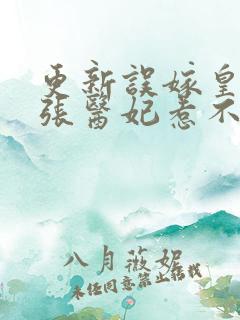 更新誤嫁皇
張醫妃惹不
八月薇妮
未经同意禁止转载